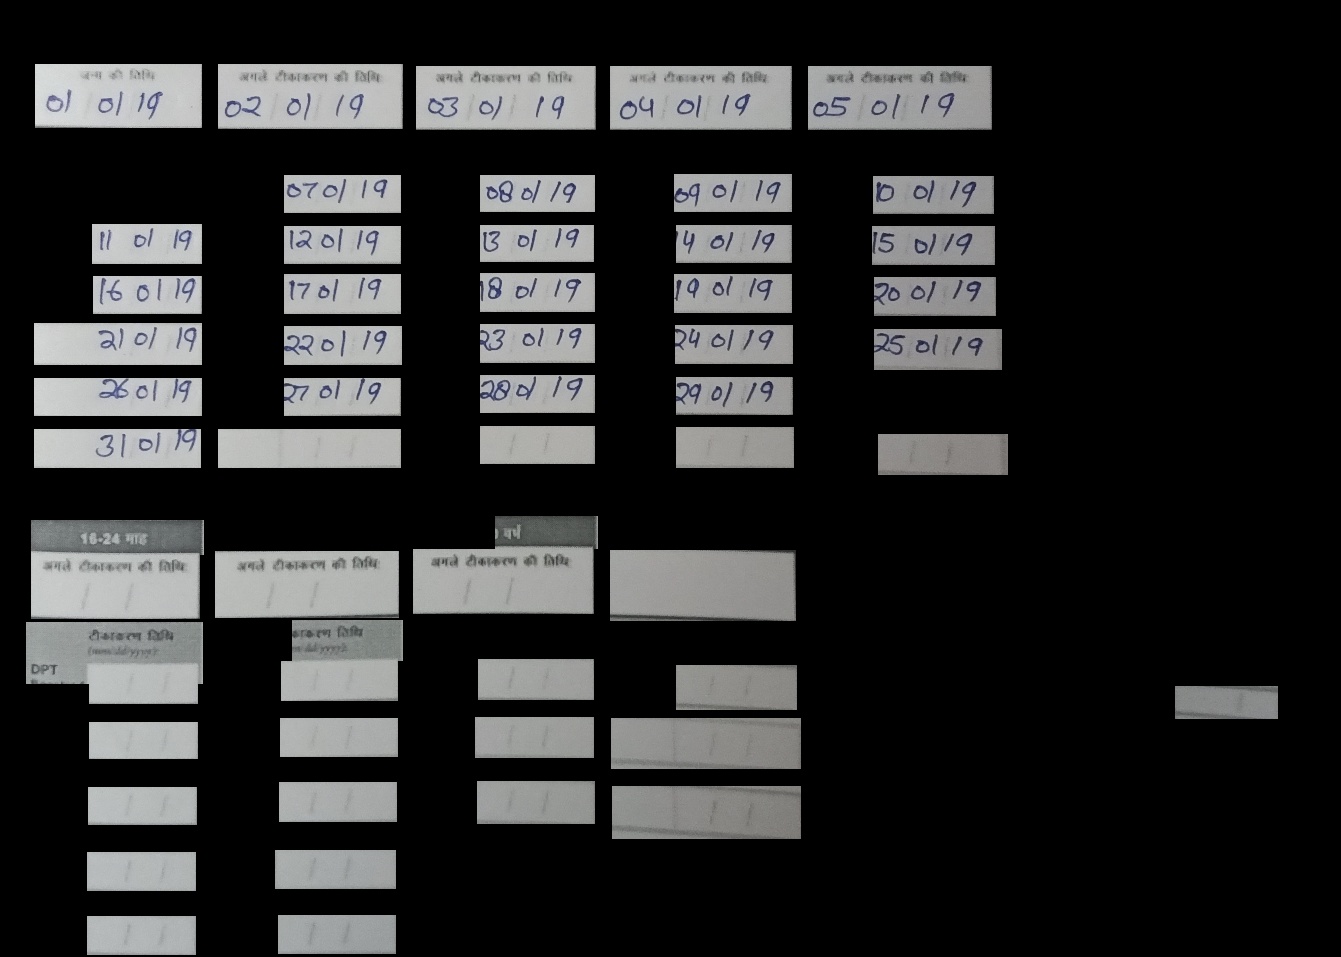 जन्म की तिथि अगले टीकाकरण की तिथि: अगले टीकाकरण की तिथि: अगले टीकाकरण की तिथि: अगले टीकाकरण की तिथि:
01/01/19 02/01/19 03/01/19 04/01/19 05/01/19
07/01/19 08/01/19 09/01/19 10/01/19
11/01/19 12/01/19 13/01/19 14/01/19 15/01/19
16/01/19 17/01/19 18/01/19 19/01/19 20/01/19
21/01/19 22/01/19 23/01/19 24/01/19 25/01/19
26/01/19 27/01/19 28/01/19 29/01/19
31/01/19
16-24 माह वर्ष
अगले टीकाकरण की तिथि: अगले टीकाकरण की तिथि: अगले टीकाकरण की तिथि:
टीकाकरण तिथि करण तिथि
(mm/dd/yyyy): dd/yyyy):
DPT